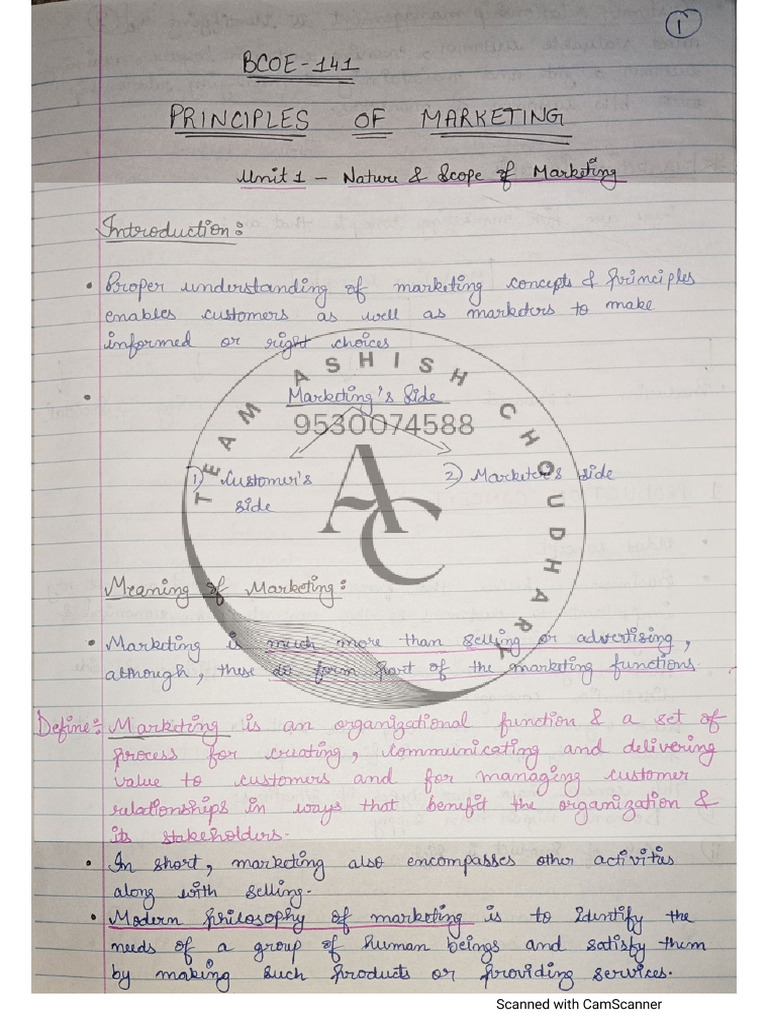 1
BCOE-141
PRINCIPLES OF MARKETING
Unit 1 - Nature & Scope of Marketing
Introduction:
• Proper understanding of marketing concepts & principles
enables customers as well as marketers to make
informed or right choices
• Marketing's Side
9530074588
1) Customer's 2) Marketer's side
side
TEAM ASHISH CHOUDHARY
AC
Meaning of Marketing:
• Marketing is much more than selling or advertising,
although, these do form part of the marketing functions.
Define:- Marketing is an organizational function & a set of
process for creating, communicating and delivering
value to customers and for managing customer
relationships in ways that benefit the organization &
its stakeholders.
• In short, marketing also encompasses other activities
along with selling.
• Modern philosophy of marketing is to Identify the
needs of a group of human beings and satisfy them
by making such products or providing services.
Scanned with CamScanner